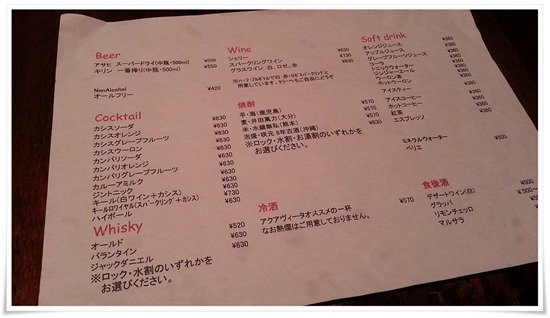 Beer
アサヒ スーパードライ(中瓶・500ml) ¥550
キリン 一番搾り(中瓶・500ml) ¥550
NonAlcohol
オールフリー ¥420
Cocktail
カシスソーダ ¥630
カシスオレンジ ¥630
カシスグレープフルーツ ¥630
カシスウーロン ¥630
カンパリソーダ ¥630
カンパリオレンジ ¥630
カンパリグレープフルーツ ¥630
カルーアミルク ¥630
ジントニック ¥630
キール(白ワイン+カシス) ¥730
キールロワイヤル(スパークリング+カシス) ¥630
ハイボール
Whisky
オールド ¥520
バランタイン ¥630
ジャックダニエル ¥630
※ロック・水割のいずれかを
お選びください。
Wine
シェリー ¥630
スパークリングワイン ¥730
グラスワイン 白、ロゼ、赤 ¥630
焼酎
芋・海(鹿児島) ¥570
麦・井田萬力(大分) ¥570
米・水鏡無私(熊本)
泡盛・咲元 8年古酒(沖縄)
※ロック・水割・お湯割のいずれかを
お選びください。
冷酒
アクアヴィータオススメの一杯
なお熱燗はご用意しておりません。
Soft drink
オレンジジュース
アップルジュース
グレープフルーツジュース
コーラ
トニックウォーター
ジンジャーエール
ウーロン茶
ホットウーロン
アイスティー
アイスコーヒー
ホットコーヒー
紅茶
エスプレッソ
ミネラルウォーター ¥500
ペリエ
食後酒
デザートワイン(白)
グラッパ
リモンチェッロ
マルサラ